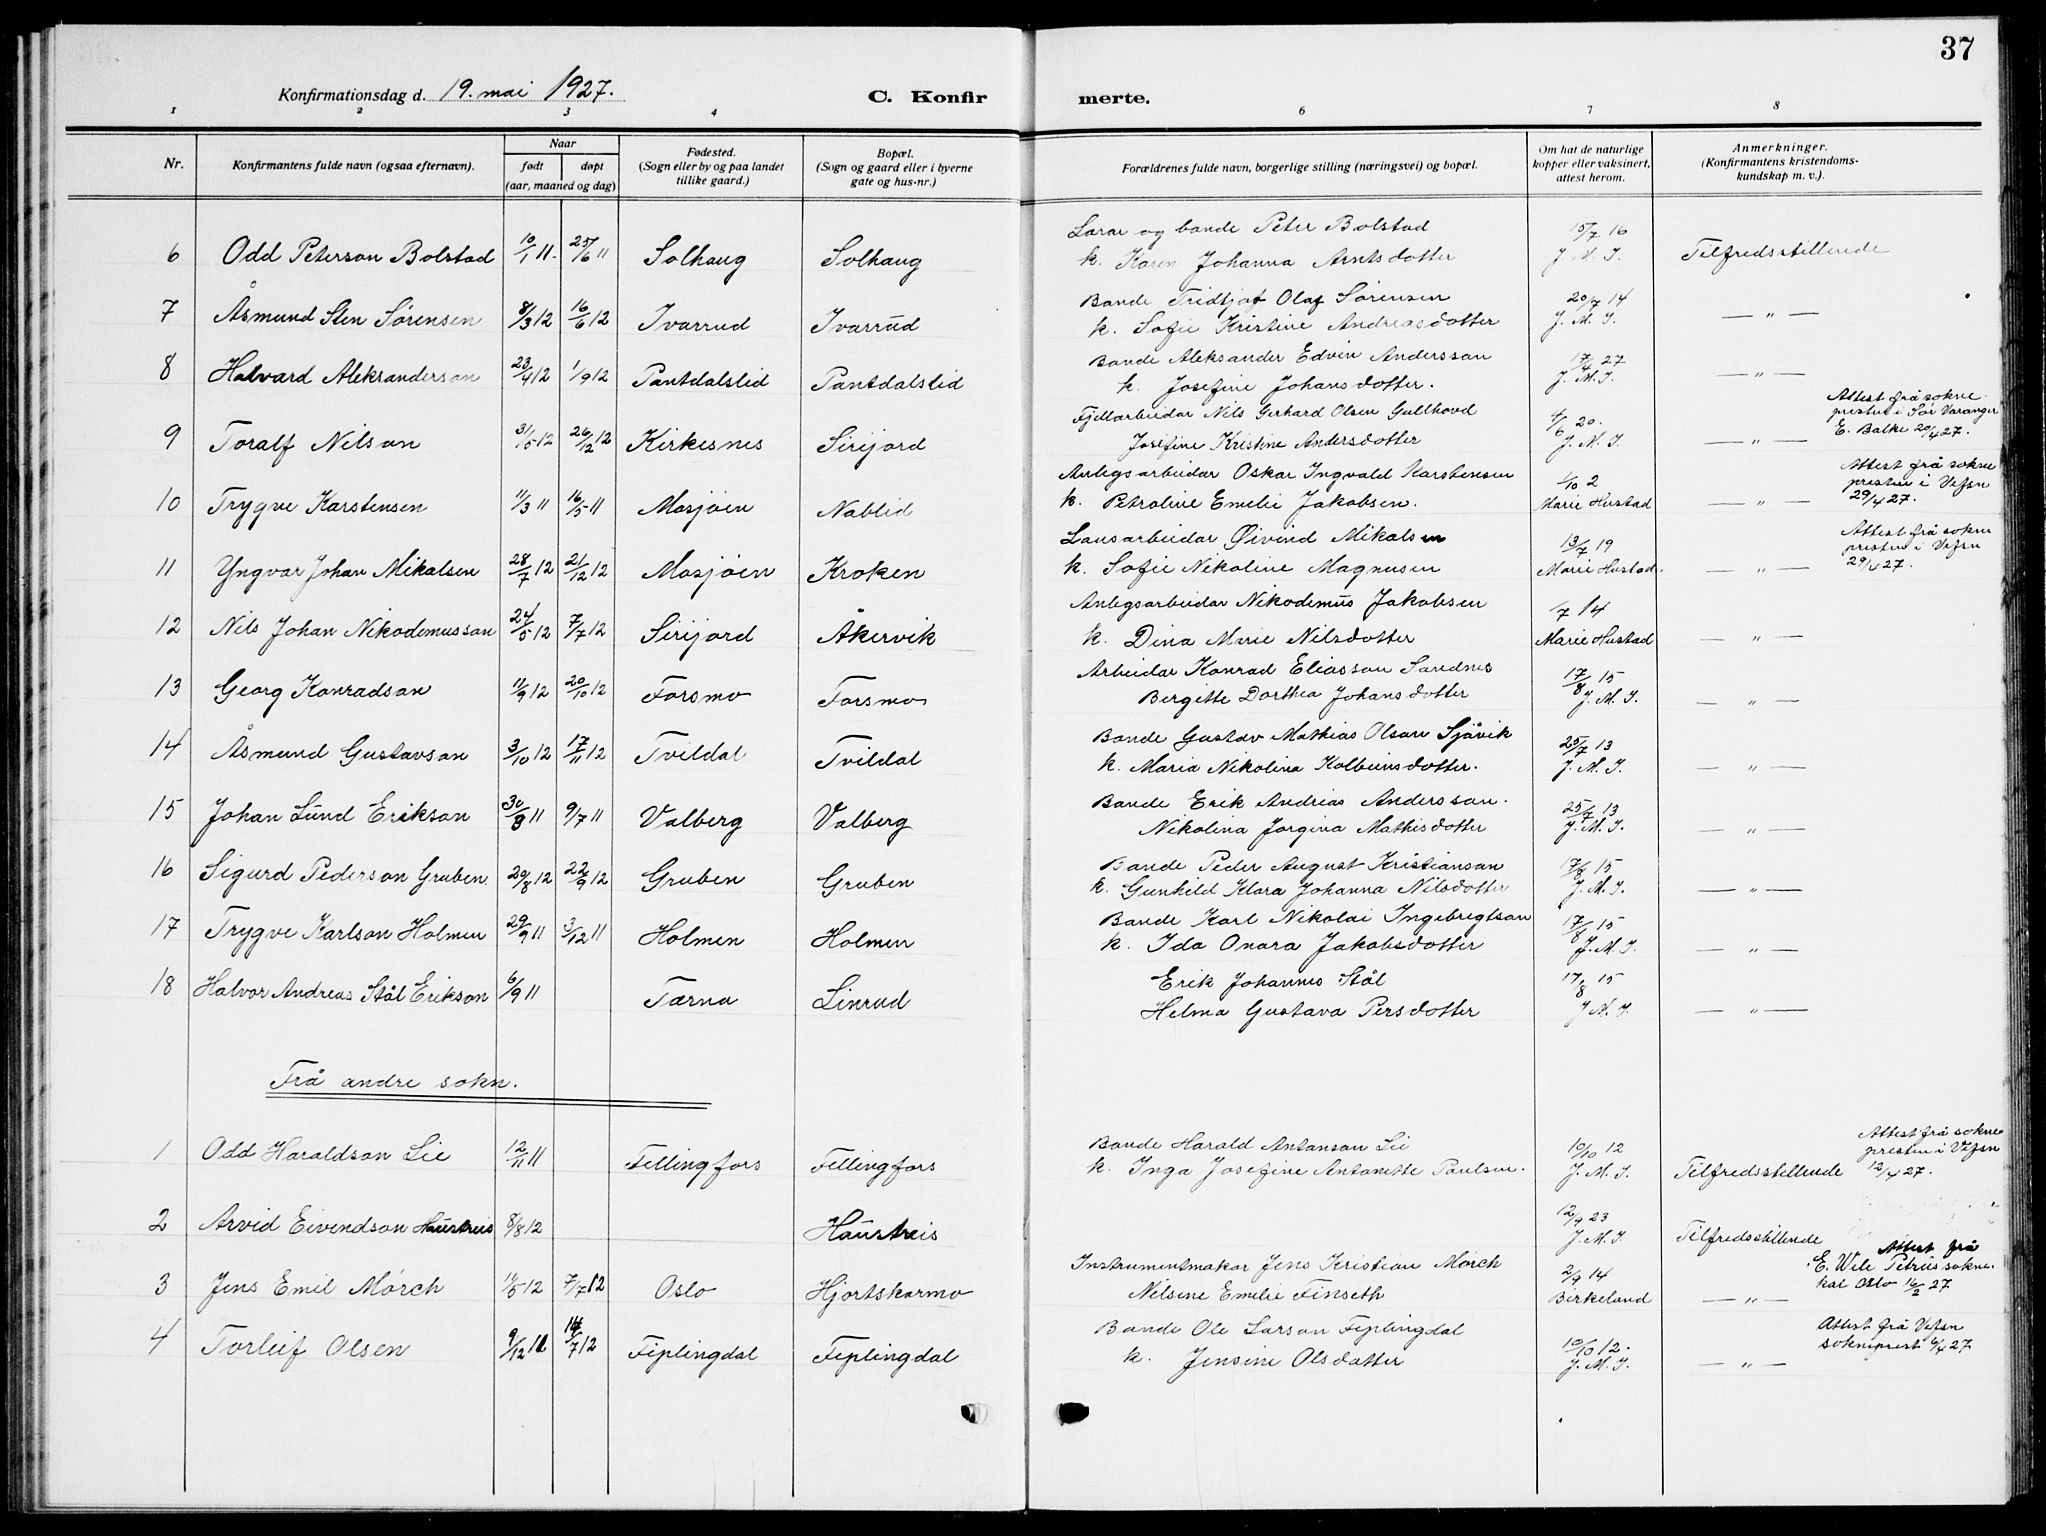 37
Konfirmationsdag d. 19. mai 1927.
C. Konfirmerte.
1 2 3 4 6 7 8
Nr.
Konfirmantens fulde navn (ogsaa efternavn).
Naar
født døpt
(aar, maaned og dag)
Fødested.
(Sogn eller by og paa landet
tillike gaard.)
Bopæl.
(Sogn og gaard eller i byerne
gate og hus-nr.)
Forældrenes fulde navn, borgerlige stilling (næringsvei) og bopæl.
Om hat de naturlige
kopper eller vaksinert,
attest herom.
Anmerkninger.
(Konfirmantens kristendoms-
kundskap m. v.).
6 Odd Peterson Bolstad 10/1 11. 25/6 11 Solhaug Solhaug
Lærar og bonde Peter Bolstad
k. Karen Johanna Arntsdotter
15/7 16
J. M. J.
Tilfredsstillende
7 Åsmund Sten Sørensen 8/3 12 16/6 12 Ivarrud Ivarrud
Bonde Fridtjof Olaf Sørensen
k. Sofie Kristine Andreasdotter
20/7 14
J. M. J.
— " —
8 Halvard Aleksanderson 23/4 12 1/9 12 Pantdalslid Pantdalslid
Bonde Aleksander Edvin Andersson
k. Josefine Johansdotter.
17/4 27
J. M. J.
— " —
9 Toralf Nilson 31/5 12 26/12 12 Kirkesnes Sirijord
Fjellarbeidar Nils Gerhard Olsen Gullhovd
Josefine Kristine Andersdotter
4/6 20.
J. M. J.
— " —
Attest frå sokne-
presten i Sør Varanger
E. Balke 20/4 27.
10 Trygve Karstensen 11/3 11 16/5 11 Mosjøen Nablid
Anlegsarbeidar Oskar Ingvald Karstensen
k. Petroline Emelie Jakobsen.
1/10 2
Marie Hustad
— " —
Attest frå sokne
presten i Vefsn
29/4 27.
11 Yngvar Johan Mikalsen 28/7 12 21/12 12 Mosjøen Kroken
Lausarbeidar Øivind Mikalsen
k. Sofie Nikoline Magnusen
13/7 19
Marie Hustad.
— " —
Attest frå sokne
presten i Vefsn
29/4 27.
12 Nils Johan Nikodemusson 24/5 12 7/7 12 Sirijord Åkervik
Anlegsarbeidar Nikodemus Jakobsen
k. Dina Marie Nilsdotter
1/7 14
Marie Hustad
— " —
13 Georg Konradson 11/9 12 20/10 12 Forsmo Forsmo
Arbeidar Konrad Eliasson Sandnes
Bergitte Dorthea Johansdotter
17/8 15
J. M. J.
— " —
14 Åsmund Gustavson 3/10 12 17/11 12 Tvildal Tvildal
Bonde Gustav Mathias Olson Sjåvik
k. Maria Nikolina Kolbeinsdotter.
25/7 13
J. M. J.
— " —
15 Johan Lund Erikson 30/3 11 9/7 11 Valberg Valberg
Bonde Erik Andrias Andersson.
Nikolina Jorgina Mathisdotter
25/7 13
J. M. J.
— " —
16 Sigurd Pederson Gruben 20/8 12 22/9 12 Gruben Gruben
Bonde Peder August Kristianson
k. Gunhild Klara Johanna Nilsdotter
17/8 15
J. M. J.
— " —
17 Trygve Karlson Holmen 29/9 11 3/12 11 Holmen Holmen
Bonde Karl Nikolai Ingebregtson
k. Ida Onara Jakobsdotter
17/8 15
J. M. J.
— " —
18 Halvor Andreas Stål Erikson 6/9 11 Tærna Linrud
Erik Johannes Stål
Helma Gustava Persdotter
17/8 15
J. M. J.
— " —
Frå andre sokn.
1 Odd Haraldson Lie 12/11 11 Fellingfors Fellingfors
Bonde Harald Antonson Lie
k. Inga Josefine Antonette Paulsen.
10/10 12
J. M. J.
Tilfredsstillende
Attest frå sokne
presten i Vefsn
12/4 27.
2 Arvid Eivendson Haustreis 8/8 12 Haustreis
12/9 23
J. M. J.
Tilfredsstillende
3 Jens Emil Mørch 11/5 12 7/7 12 Oslo Hjortskarmo
Instrumentmakar Jens Kristian Mørch
Nilsine Emilie Finseth
2/9 14
Birkeland
— " —
Attest frå
kal Oslo 16/2 27
4 Torleif Olsen 9/12 11 14/7 12 Fiplingdal Fiplingdal
Bonde Ole Larson Fiplingdal
k. Jensine Olsdotter
10/10 12.
J. M. J.
— " —
Attest frå Vefsn
sokneprest 6/4 27